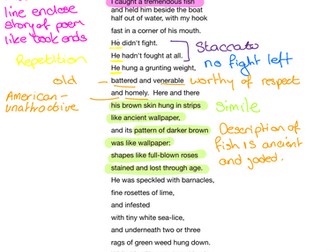 line enclose
story of poem
like book ends
Repetition
old
American -
unattractive
I caught a tremendous fish
and held him beside the boat
half out of water, with my hook
fast in a corner of his mouth.
He didn't fight.
He hadn't fought at all.
He hung a grunting weight,
battered and venerable
and homely. Here and there
his brown skin hung in strips
like ancient wallpaper,
and its pattern of darker brown
was like wallpaper:
shapes like full-blown roses
stained and lost through age.
He was speckled with barnacles,
fine rosettes of lime,
and infested
with tiny white sea-lice,
and underneath two or three
rags of green weed hung down.
Staccato
no fight left
worthy of respect
Simile
Description of
fish is ancient
and jaded.